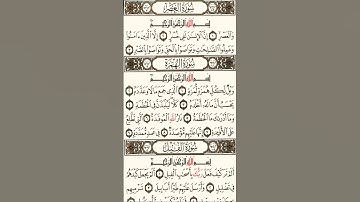 سُورَةُ العَصْرِ
بِسْمِ اللَّهِ الرَّحْمَٰنِ الرَّحِيمِ
وَالْعَصْرِ ۝١ إِنَّ الْإِنسَانَ لَفِي خُسْرٍ ۝٢ إِلَّا الَّذِينَ ءَامَنُوا
وَعَمِلُوا الصَّالِحَاتِ وَتَوَاصَوْا بِالْحَقِّ وَتَوَاصَوْا بِالصَّبْرِ ۝٣
سُورَةُ الهُمَزَةِ
بِسْمِ اللَّهِ الرَّحْمَٰنِ الرَّحِيمِ
وَيْلٌ لِّكُلِّ هُمَزَةٍ لُّمَزَةٍ ۝١ الَّذِي جَمَعَ مَالًا وَعَدَّدَهُ ۝٢
يَحْسَبُ أَنَّ مَالَهُ أَخْلَدَهُ ۝٣ كَلَّا لَيُنبَذَنَّ فِي الْحُطَمَةِ ۝٤
وَمَا أَدْرَاكَ مَا الْحُطَمَةُ ۝٥ نَارُ اللَّهِ الْمُوقَدَةُ ۝٦ الَّتِي تَطَّلِعُ
عَلَى الْأَفْئِدَةِ ۝٧ إِنَّهَا عَلَيْهِم مُّؤْصَدَةٌ ۝٨ فِي عَمَدٍ مُّمَدَّدَةٍ ۝٩
سُورَةُ الفِيلِ
بِسْمِ اللَّهِ الرَّحْمَٰنِ الرَّحِيمِ
أَلَمْ تَرَ كَيْفَ فَعَلَ رَبُّكَ بِأَصْحَابِ الْفِيلِ ۝١ أَلَمْ يَجْعَلْ كَيْدَهُمْ
فِي تَضْلِيلٍ ۝٢ وَأَرْسَلَ عَلَيْهِمْ طَيْرًا أَبَابِيلَ ۝٣ تَرْمِيهِم